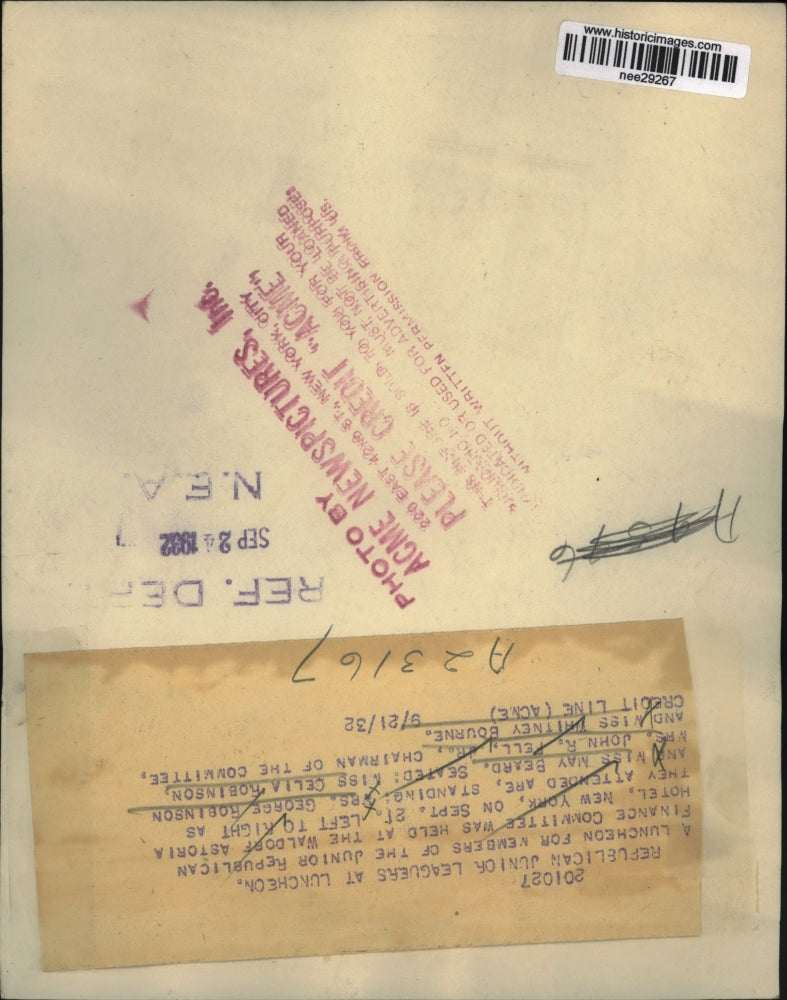 www.historicimages.com
nee29267
PHOTO BY
ACME NEWSPICTURES, Inc.
220 EAST 42ND ST., NEW YORK, CITY
PLEASE CREDIT "ACME"
THIS PICTURE IS SOLD TO YOU FOR YOUR
MUST NOT BE LOANED
OR USED FOR ADVERTISING PURPOSES
WITHOUT WRITTEN PERMISSION FROM US.
N.E.A.
SEP 24 1932
REF. DEP
A23167
201027
REPUBLICAN JUNIOR LEAGUERS AT LUNCHEON.
A LUNCHEON FOR MEMBERS OF THE JUNIOR REPUBLICAN
FINANCE COMMITTEE WAS HELD AT THE WALDORF ASTORIA
HOTEL, NEW YORK, ON SEPT. 21. LEFT TO RIGHT AS
THEY ATTENDED ARE, STANDING: MRS. GEORGE ROBINSON
AND MISS MAY BEARD. SEATED: MISS CELIA ROBINSON,
MRS. JOHN R. FELL, JR., CHAIRMAN OF THE COMMITTEE,
AND MISS WHITNEY BOURNE.
CREDIT LINE (ACME) 9/21/32